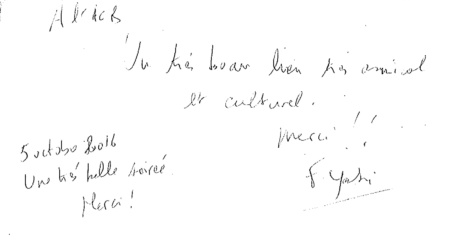 A l'ACB
Un très beau lien très amical
et culturel.
Merci !!
5 octobre 2016
Une très belle soirée
Merci !